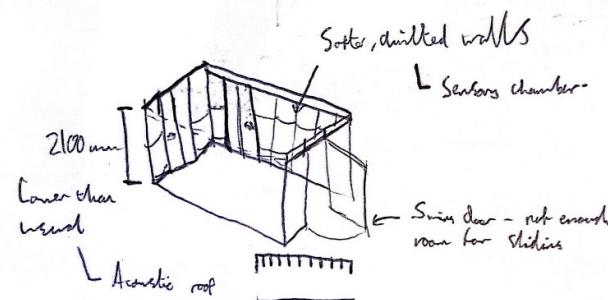 Softer, quilted walls
Sensory chamber
2100mm
Lower than
usual
Acoustic roof
Swing door - not enough
room for sliding